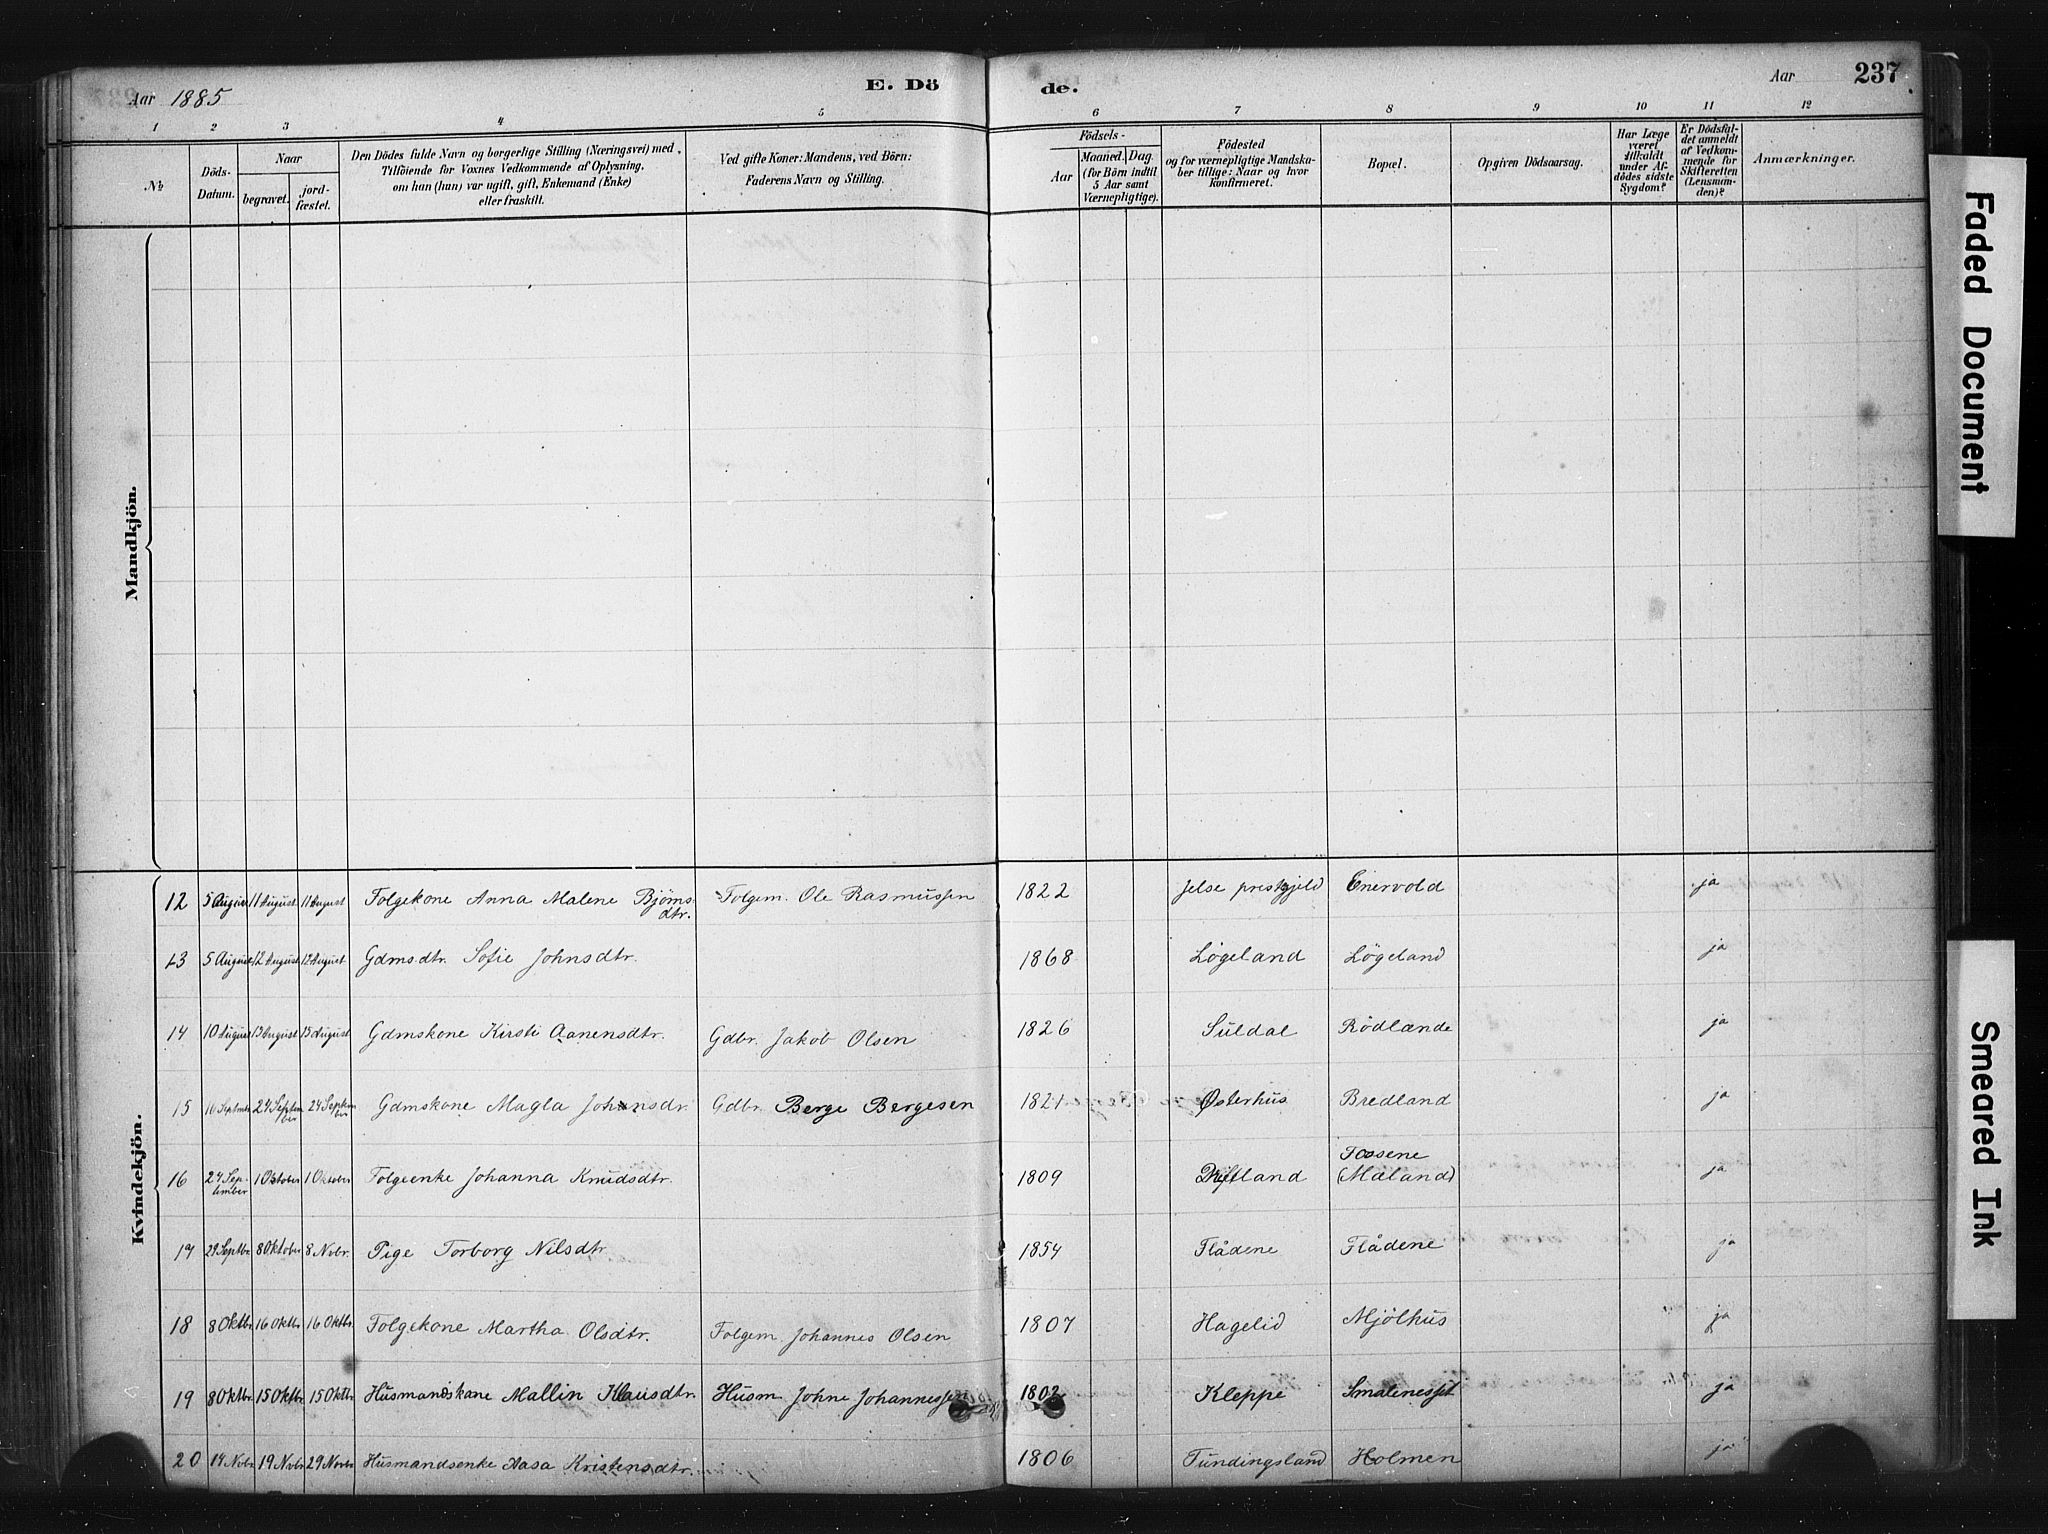 Aar 1885
E. Dö
de.
Aar
237
1 2 3 4 5 6 7 8 9 10 11 12
№
Döds-
Datum.
Naar
begravet.
jord-
fæstet.
Den Dödes fulde Navn og borgerlige Stilling (Næringsvei) med
Tilföiende for Voxnes Vedkommende af Oplysning,
om han (hun) var ugift, gift, Enkemand (Enke)
eller fraskilt.
Ved gifte Koner: Mandens, ved Börn:
Faderens Navn og Stilling.
Födsels-
Aar
Maaned. Dag.
(for Börn indtil
5 Aar samt
Værnepligtige).
Födested
og for værnepligtige Mandska-
ber tillige: Naar og hvor
konfirmeret.
Bopæl.
Opgiven Dödsaarsag.
Har Læge
været
tilkaldt
under Af-
dödes sidste
Sygdom?
Er Dödsfal-
det anmeldt
af Vedkom-
mende for
Skifteretten
(Lensman-
den)?
Anmærkninger.
Mandkjön.
Kvindekjön.
12 5 August 11 August 11 August Folgekone Anna Malene Bjørns-
dtr. Folgem. Ole Rasmussen 1822 Jelse prestgjeld Enervold ja
13 5 August 12 August 12 August Gdms.dtr. Sofie Johnsdtr. 1868 Løgeland Løgeland ja
14 10 August 13 August 13 August Gdmskone Kirsti Aanensdtr. Gdbr. Jakob Olsen 1826 Suldal Rødlænde ja
15 24 Septem
ber 24 Septem
ber Gdmskone Magla Johnsdr. Gdbr. Berge Bergesen 1821 Østerhus Bredland ja
16 24 Sep-
tember 1 Oktober 1 Oktober Folgeenke Johanna Knudsdtr. 1809 Fossene
(Maland) ja
17 29 Septbr. 8 Oktober 8 Nvbr. Pige Torborg Nilsdtr 1854 Flådene Flådene ja
18 8 Oktbr. 16 Oktbr. 16 Oktbr. Folgekone Martha Olsdtr. Folgem. Johannes Olsen 1807 Hagelid Mjölhus ja
19 8 Oktbr. 15 Oktbr. 15 Oktbr. Husmandskane Mallin Klausdtr. Husm. Johne Johannessen 1802 Kleppe ja
20 14 Nvbr. 19 Nvbr. 29 Novbr. Husmandsenke Aasa Kristensdtr. 1806 Tundingsland Holmen ja
Faded Document
Smeared Ink